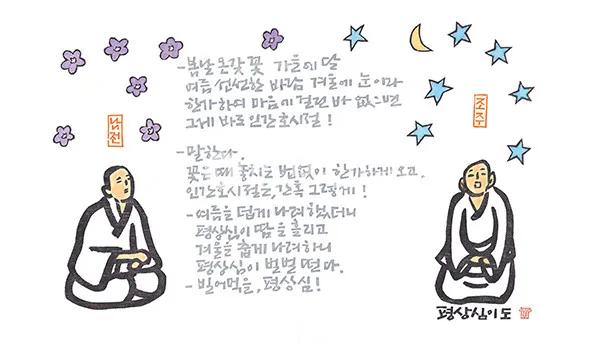 -봄날 온갖 꽃 가을에 달
여름 선선한 바람 겨울에 눈이라
한가하여 마음에 걸린 바 없으면
그게 바로 인간호시절!
-말한다.
꽃은 때 놓치는 법 없이 한가하게! 오고.
인간호시절을, 간혹 그렇게!
-여름을 덥게 나려 했더니
평상심이 땀을 흘리고
겨울을 춥게 나려하니
평상심이 벌벌 떤다.
-빌어먹을, 평상심!
남전
조주
평상심이도